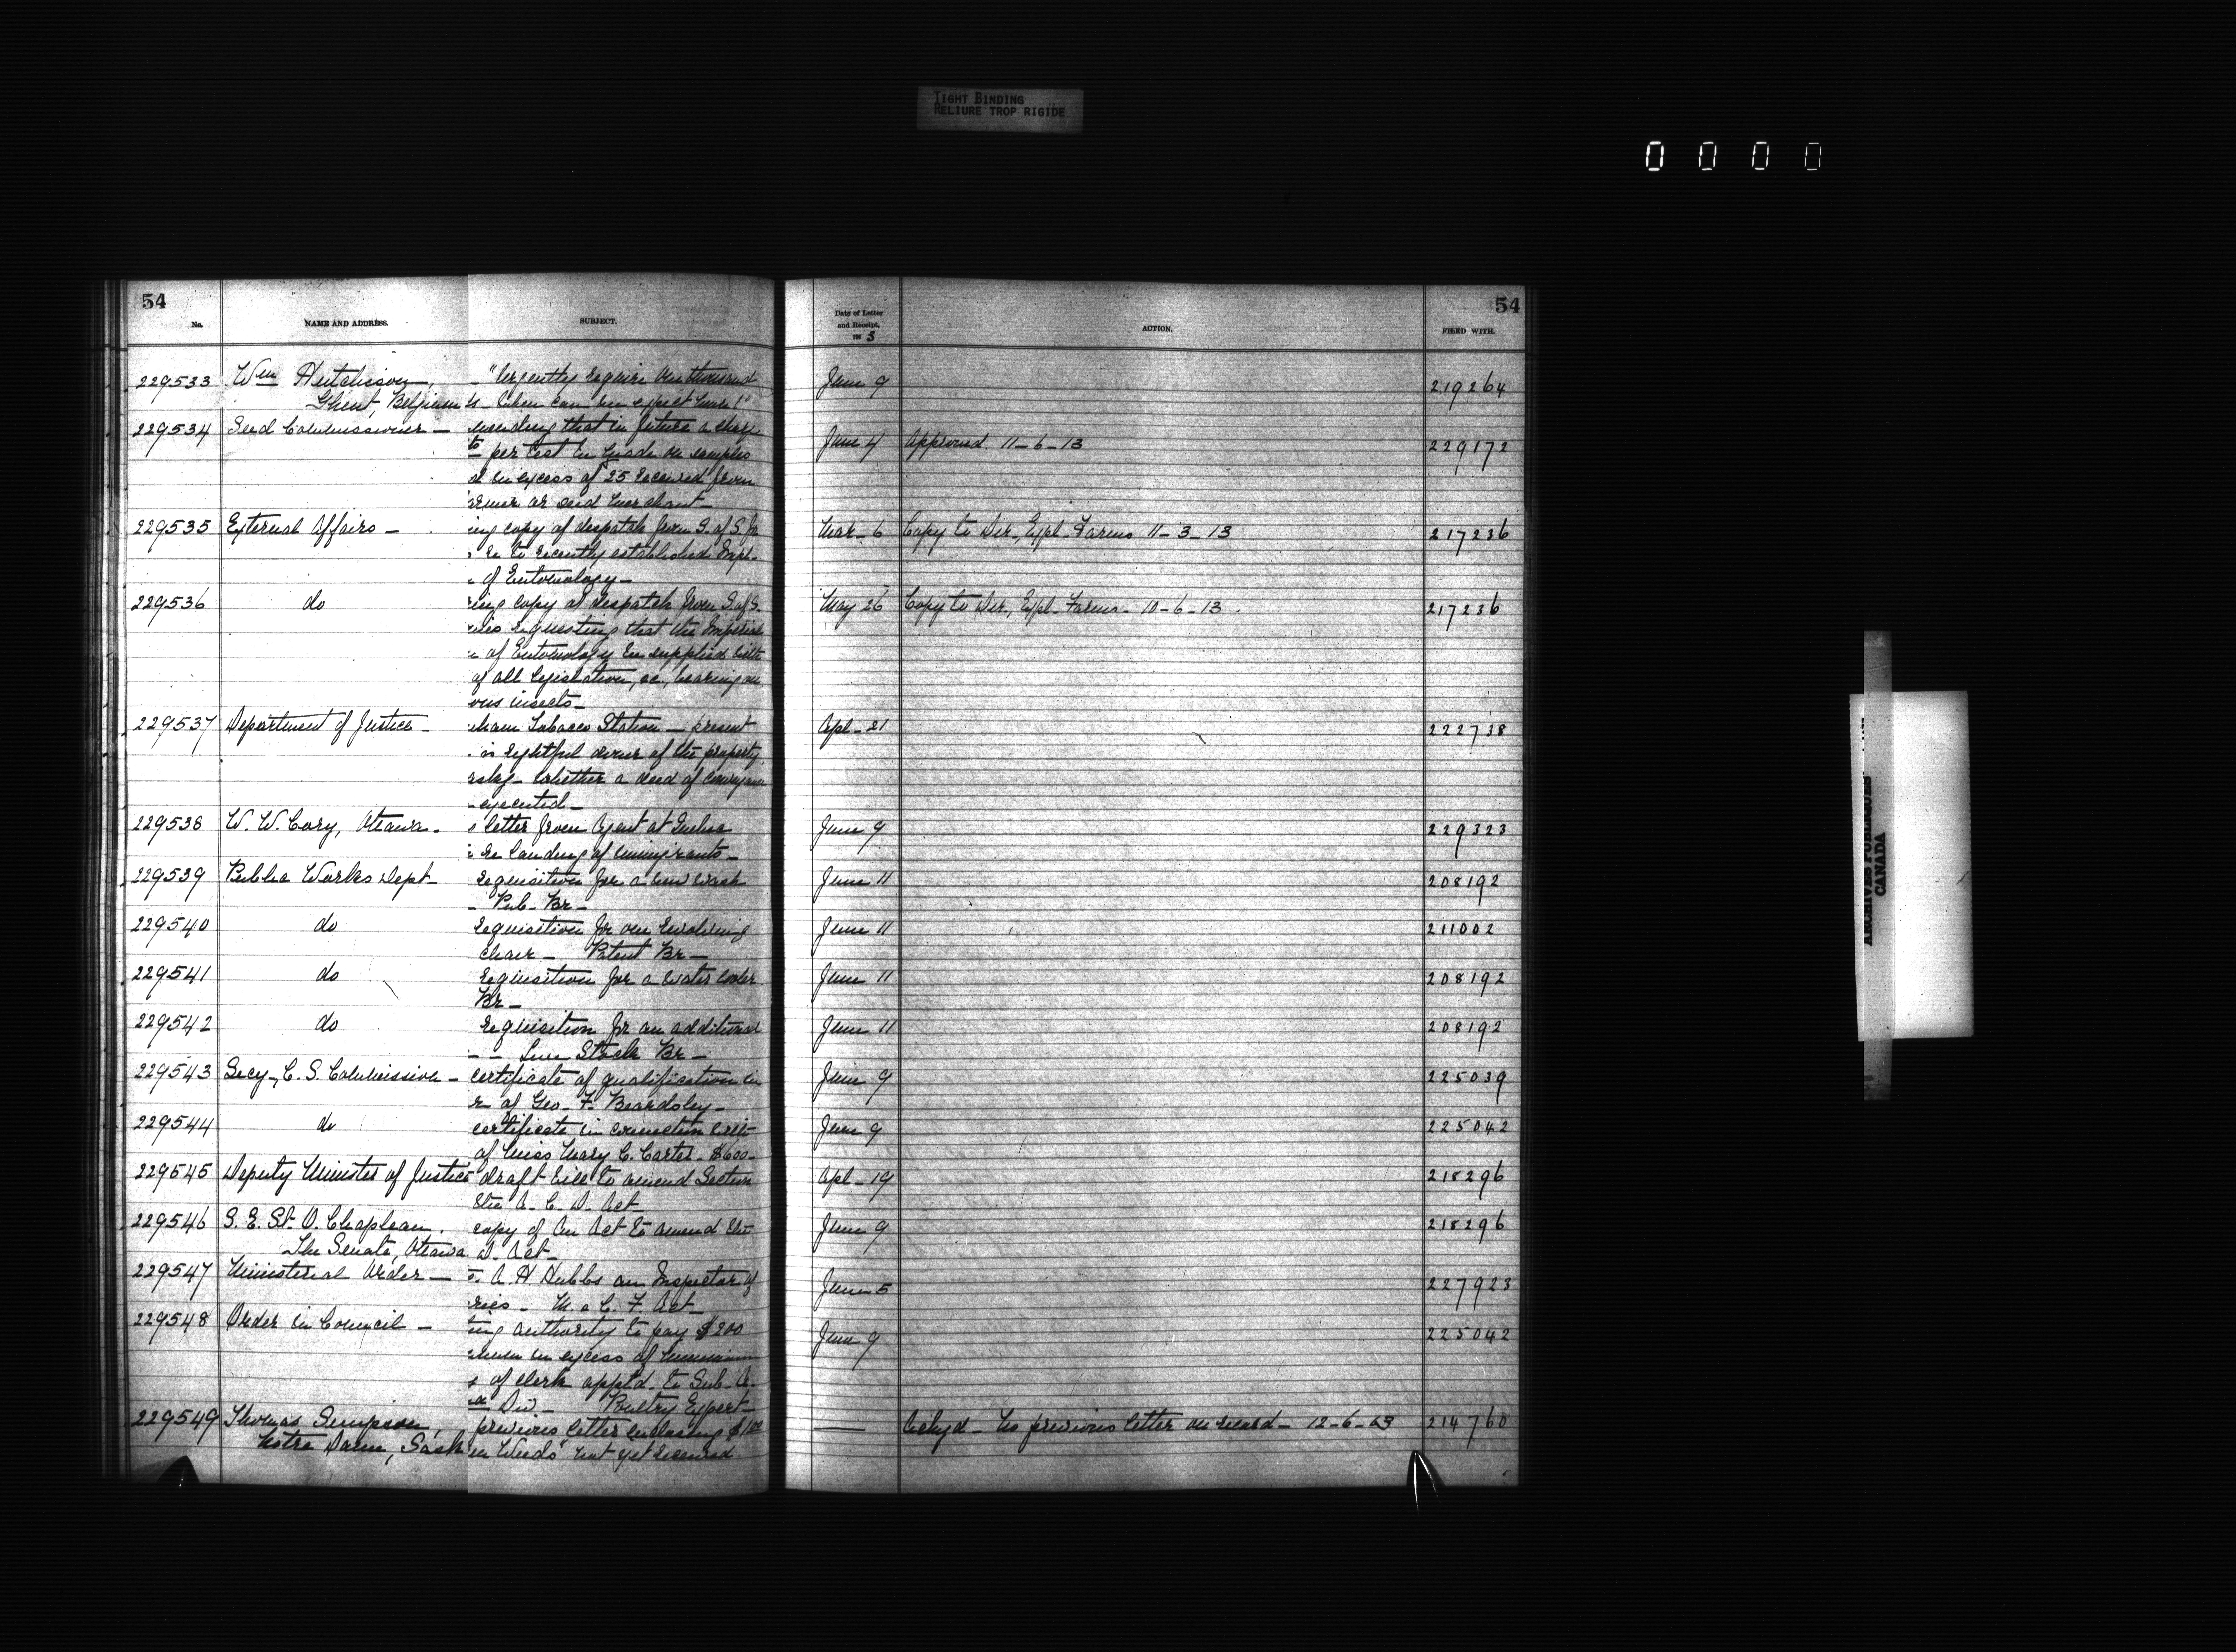 TIGHT BINDING
RELIURE TROP RIGIDE
0 0 0 0
54
No. NAME AND ADDRESS. SUBJECT.
229533 Wm Hutchison, "Urgently require one thousand
Ghent, Belgium when can we expect them?"
229534 Seed Commissioner — mending that in future a charge
per test be made on samples
d in excess of 25 received from
armer or seed merchant —
229535 External Affairs — ing copy of despatch from S. of S. for
re to recently established Impl.
of Entomology —
229536 do ing copy of despatch from S. of S.
nies requesting that the Imperial
of Entomology be supplied with
of all legislation, &c., bearing on
ous insects —
229537 Department of Justice — ham Tobacco Station — present
is rightful owner of the property
whether a deed of conveyance
executed —
229538 W. W. Cory, Ottawa — letter from Agent at Quebec
re landing of immigrants —
229539 Public Works Dept — requisition for a new wash
— Pub. Br —
229540 do requisition for one revolving
chair — Patent Br —
229541 do requisition for a water cooler
Br —
229542 do requisition for an additional
— Live Stock Br —
229543 Secy., C. S. Commission — certificate of qualification in
r of Geo. F. Beardsley —
229544 do certificate in connection with
of Miss Mary C. Carter. $600 —
229545 Deputy Minister of Justice draft bill to amend Section
the A. C. D. Act
229546 S. E. St. O. Chapleau. copy of An Act to amend the
The Senate, Ottawa. D. Act —
229547 Ministerial Order — A. H. Hubbs an Inspector of
ries — M. & C. F. Act —
229548 Order in Council — ing authority to pay $200
annum in excess of minimum
of clerk apptd. to Sub. C.
Div — Poultry Expert —
229549 Thomas Simpson, previous letter enclosing $1.00
Notre Dame, Sask "m Weeds" not yet received
54
Date of Letter
and Receipt,
191 3
ACTION. FILED WITH.
June 9 219264
June 4 Approved. 11-6-13 229172
Mar. 6 Copy to Dir., Expl. Farms 11-3-13 217236
May 26 Copy to Dir., Expl. Farms — 10-6-13. 217236
Apl. 21 222738
June 9 229323
June 11 208192
June 11 211002
June 11 208192
June 11 208192
June 9 225039
June 9 225042
Apl. 19 218296
June 9 218296
June 5 227923
June 9 225042
— Ackgd — No previous letter on record — 12-6-13 214760
ARCHIVES PUBLIQUES
CANADA